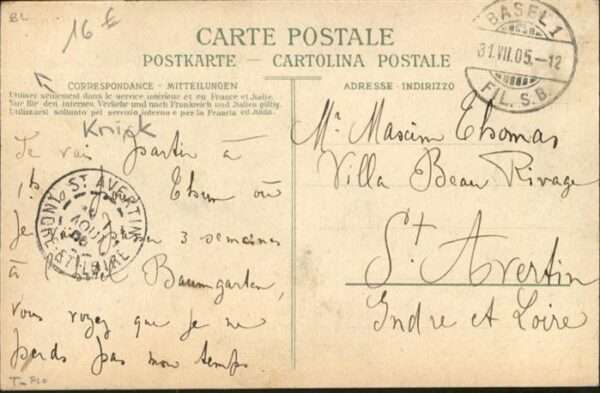 BL
16 £
CARTE POSTALE
POSTKARTE - CARTOLINA POSTALE
CORRESPONDANCE - MITTEILUNGEN
Utilisez seulement dans le service intérieur et en France et Italie.
Nur für den internen Verkehr und nach Frankreich und Italien giltig.
Utilizzarsi soltanto pel servizio interno e per la Francia ed Italia.
ADRESSE - INDIRIZZO
BASEL 1
31.VII.05.-12
FIL. S.B.
Knick
Je vais partir à
Thun où
Je vais passer 3 semaines
à l'Hôtel Baumgarten,
vous voyez que je ne
perds pas mon temps
ST AVERTIN
AOUT
05
ET LOIRE
Mr Maxim Thomas
Villa Beau Rivage
St. Avertin
Indre et Loire